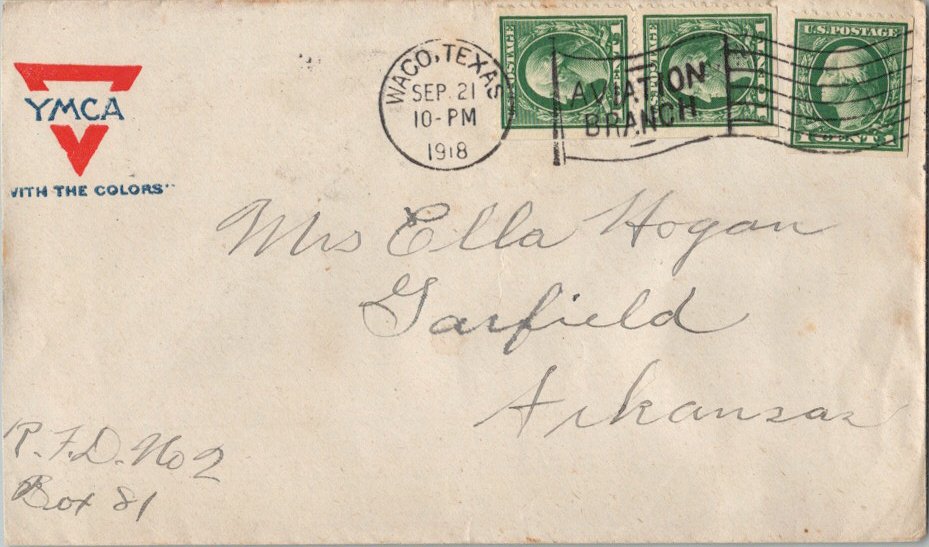 YMCA
WITH THE COLORS"
WACO, TEXAS
SEP. 21
10-PM
1918
AVIATION
BRANCH
U.S. POSTAGE
1 CENT 1
Mrs Ella Hogan
Garfield
Arkansas
R.F.D. No 2
Box 81